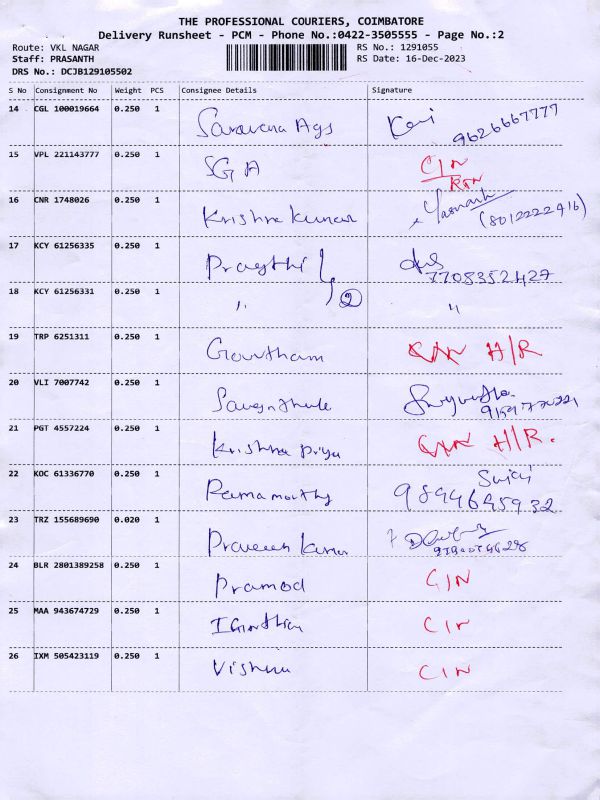 THE PROFESSIONAL COURIERS, COIMBATORE
Delivery Runsheet - PCM - Phone No.:0422-3505555 - Page No.:2
Route: VKL NAGAR RS No.: 1291055
Staff: PRASANTH RS Date: 16-Dec-2023
DRS No.: DCJB129105502
S No Consignment No Weight PCS Consignee Details Signature
14 CGL 100019664 0.250 1 Saravana Ags
9626667777
15 VPL 221143777 0.250 1 SGA CIN
RTN
16 CNR 1748026 0.250 1 Krishna kumar (8012222916)
17 KCY 61256335 0.250 1
7708352427
18 KCY 61256331 0.250 1 " 2 "
19 TRP 6251311 0.250 1 Gowtham H/R
20 VLI 7007742 0.250 1
21 PGT 4557224 0.250 1 Krishna priya H/R.
22 KOC 61336770 0.250 1 Ramamoorthy
9894645932
23 TRZ 155689690 0.020 1 Praveen kumar
24 BLR 2801389258 0.250 1 Pramod CIN
25 MAA 943674729 0.250 1 CIN
26 IXM 505423119 0.250 1 Vishnu CIN